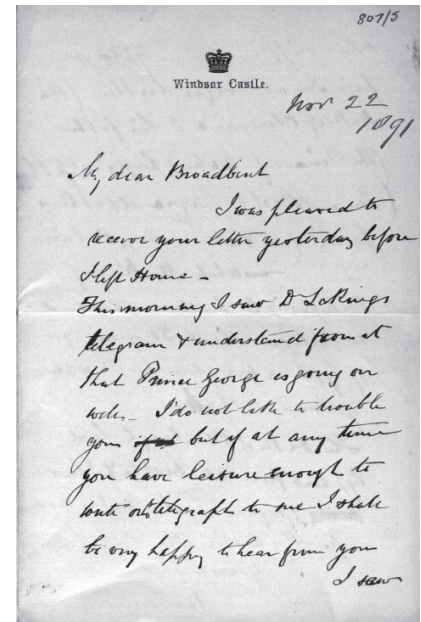 807/5
Windsor Castle.
Nov 22
1891
My dear Broadbent
I was pleased to
receive your letter yesterday before
I left Home -
This morning I saw D Lakings
telegram & understand from it
that Prince George is going on
well - I do not like to trouble
you but if at any time
you have leisure enough to
write or telegraph to me I shall
be very happy to hear from you
I saw